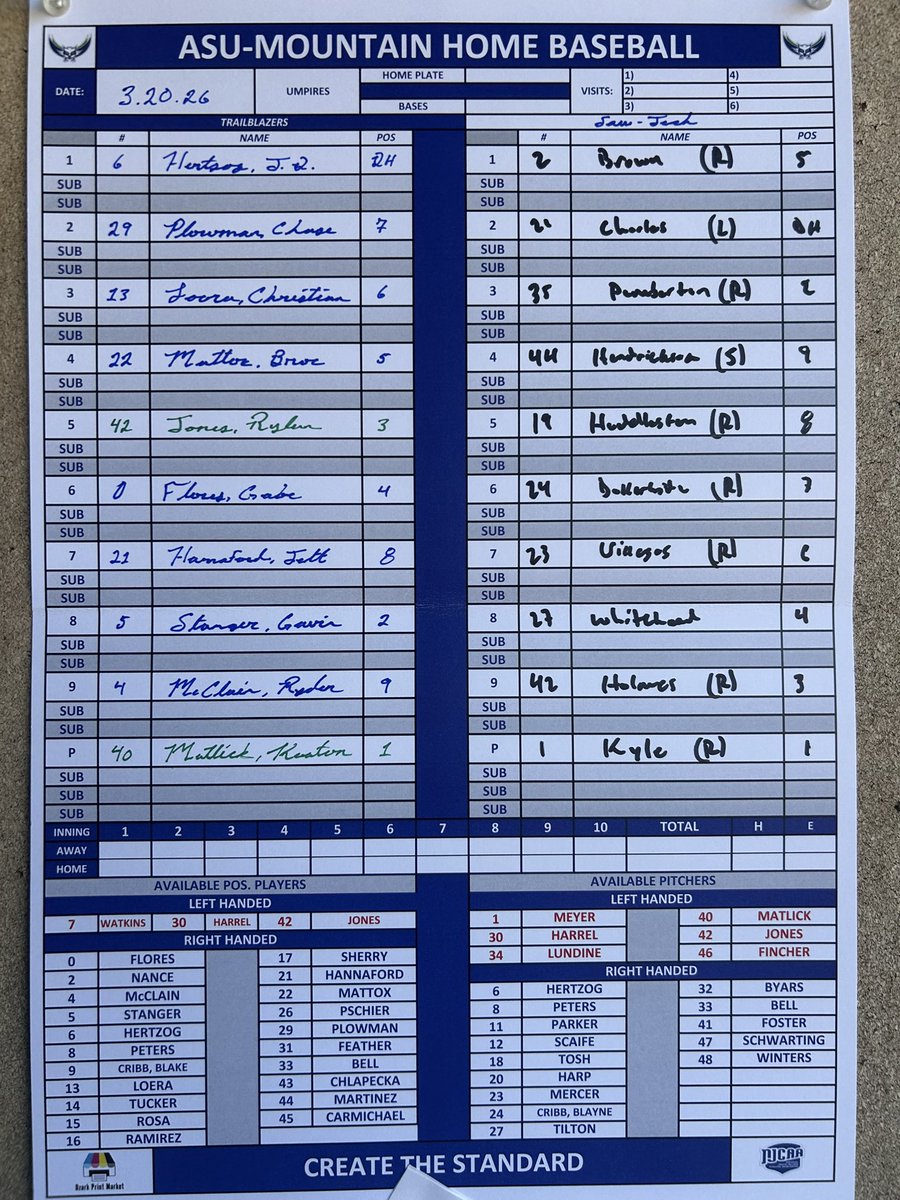 ASU-MOUNTAIN HOME BASEBALL
DATE: 3.20.26 UMPIRES HOME PLATE BASES VISITS: 1) 2) 3) 4) 5) 6)
TRAILBLAZERS
# NAME POS # NAME POS
1 6 Hertzog, J.D. DH 1 2 Brown (R) 5
SUB SUB
SUB SUB
2 29 Plowman, Chase 7 2 21 Charles (L) DH
SUB SUB
SUB SUB
3 13 Loera, Christian 6 3 35 Pemberton (R) 2
SUB SUB
SUB SUB
4 22 Mattox, Broc 5 4 44 Hendrickson (S) 9
SUB SUB
SUB SUB
5 42 Jones, Rylen 3 5 19 Huddleston (R) 8
SUB SUB
SUB SUB
6 0 Flores, Gabe 4 6 24 (R) 7
SUB SUB
SUB SUB
7 21 Hannaford, Jett 8 7 23 Villegas (R)
SUB SUB
SUB SUB
8 5 Stanger, Gavin 2 8 27 Whitehead 4
SUB SUB
SUB SUB
9 4 McClain, Ryder 9 9 42 Holmes (R) 3
SUB SUB
SUB SUB
P 40 Matlick, Keaton 1 P 1 Kyle (R) 1
SUB SUB
SUB SUB
SUB SUB
INNING 1 2 3 4 5 6 7 8 9 10 TOTAL H E
AWAY
HOME
AVAILABLE POS. PLAYERS AVAILABLE PITCHERS
LEFT HANDED LEFT HANDED
7 WATKINS 30 HARREL 42 JONES 1 MEYER 40 MATLICK
30 HARREL 42 JONES
34 LUNDINE 46 FINCHER
RIGHT HANDED RIGHT HANDED
0 FLORES 17 SHERRY 6 HERTZOG 32 BYARS
2 NANCE 21 HANNAFORD 8 PETERS 33 BELL
4 McCLAIN 22 MATTOX 11 PARKER 41 FOSTER
5 STANGER 26 PSCHIER 12 SCAIFE 47 SCHWARTING
6 HERTZOG 29 PLOWMAN 18 TOSH 48 WINTERS
8 PETERS 31 FEATHER 20 HARP
9 CRIBB, BLAKE 33 BELL 23 MERCER
13 LOERA 43 CHLAPECKA 24 CRIBB, BLAYNE
14 TUCKER 44 MARTINEZ 27 TILTON
15 ROSA 45 CARMICHAEL
16 RAMIREZ
CREATE THE STANDARD
Ozark Print Market
NJCAA